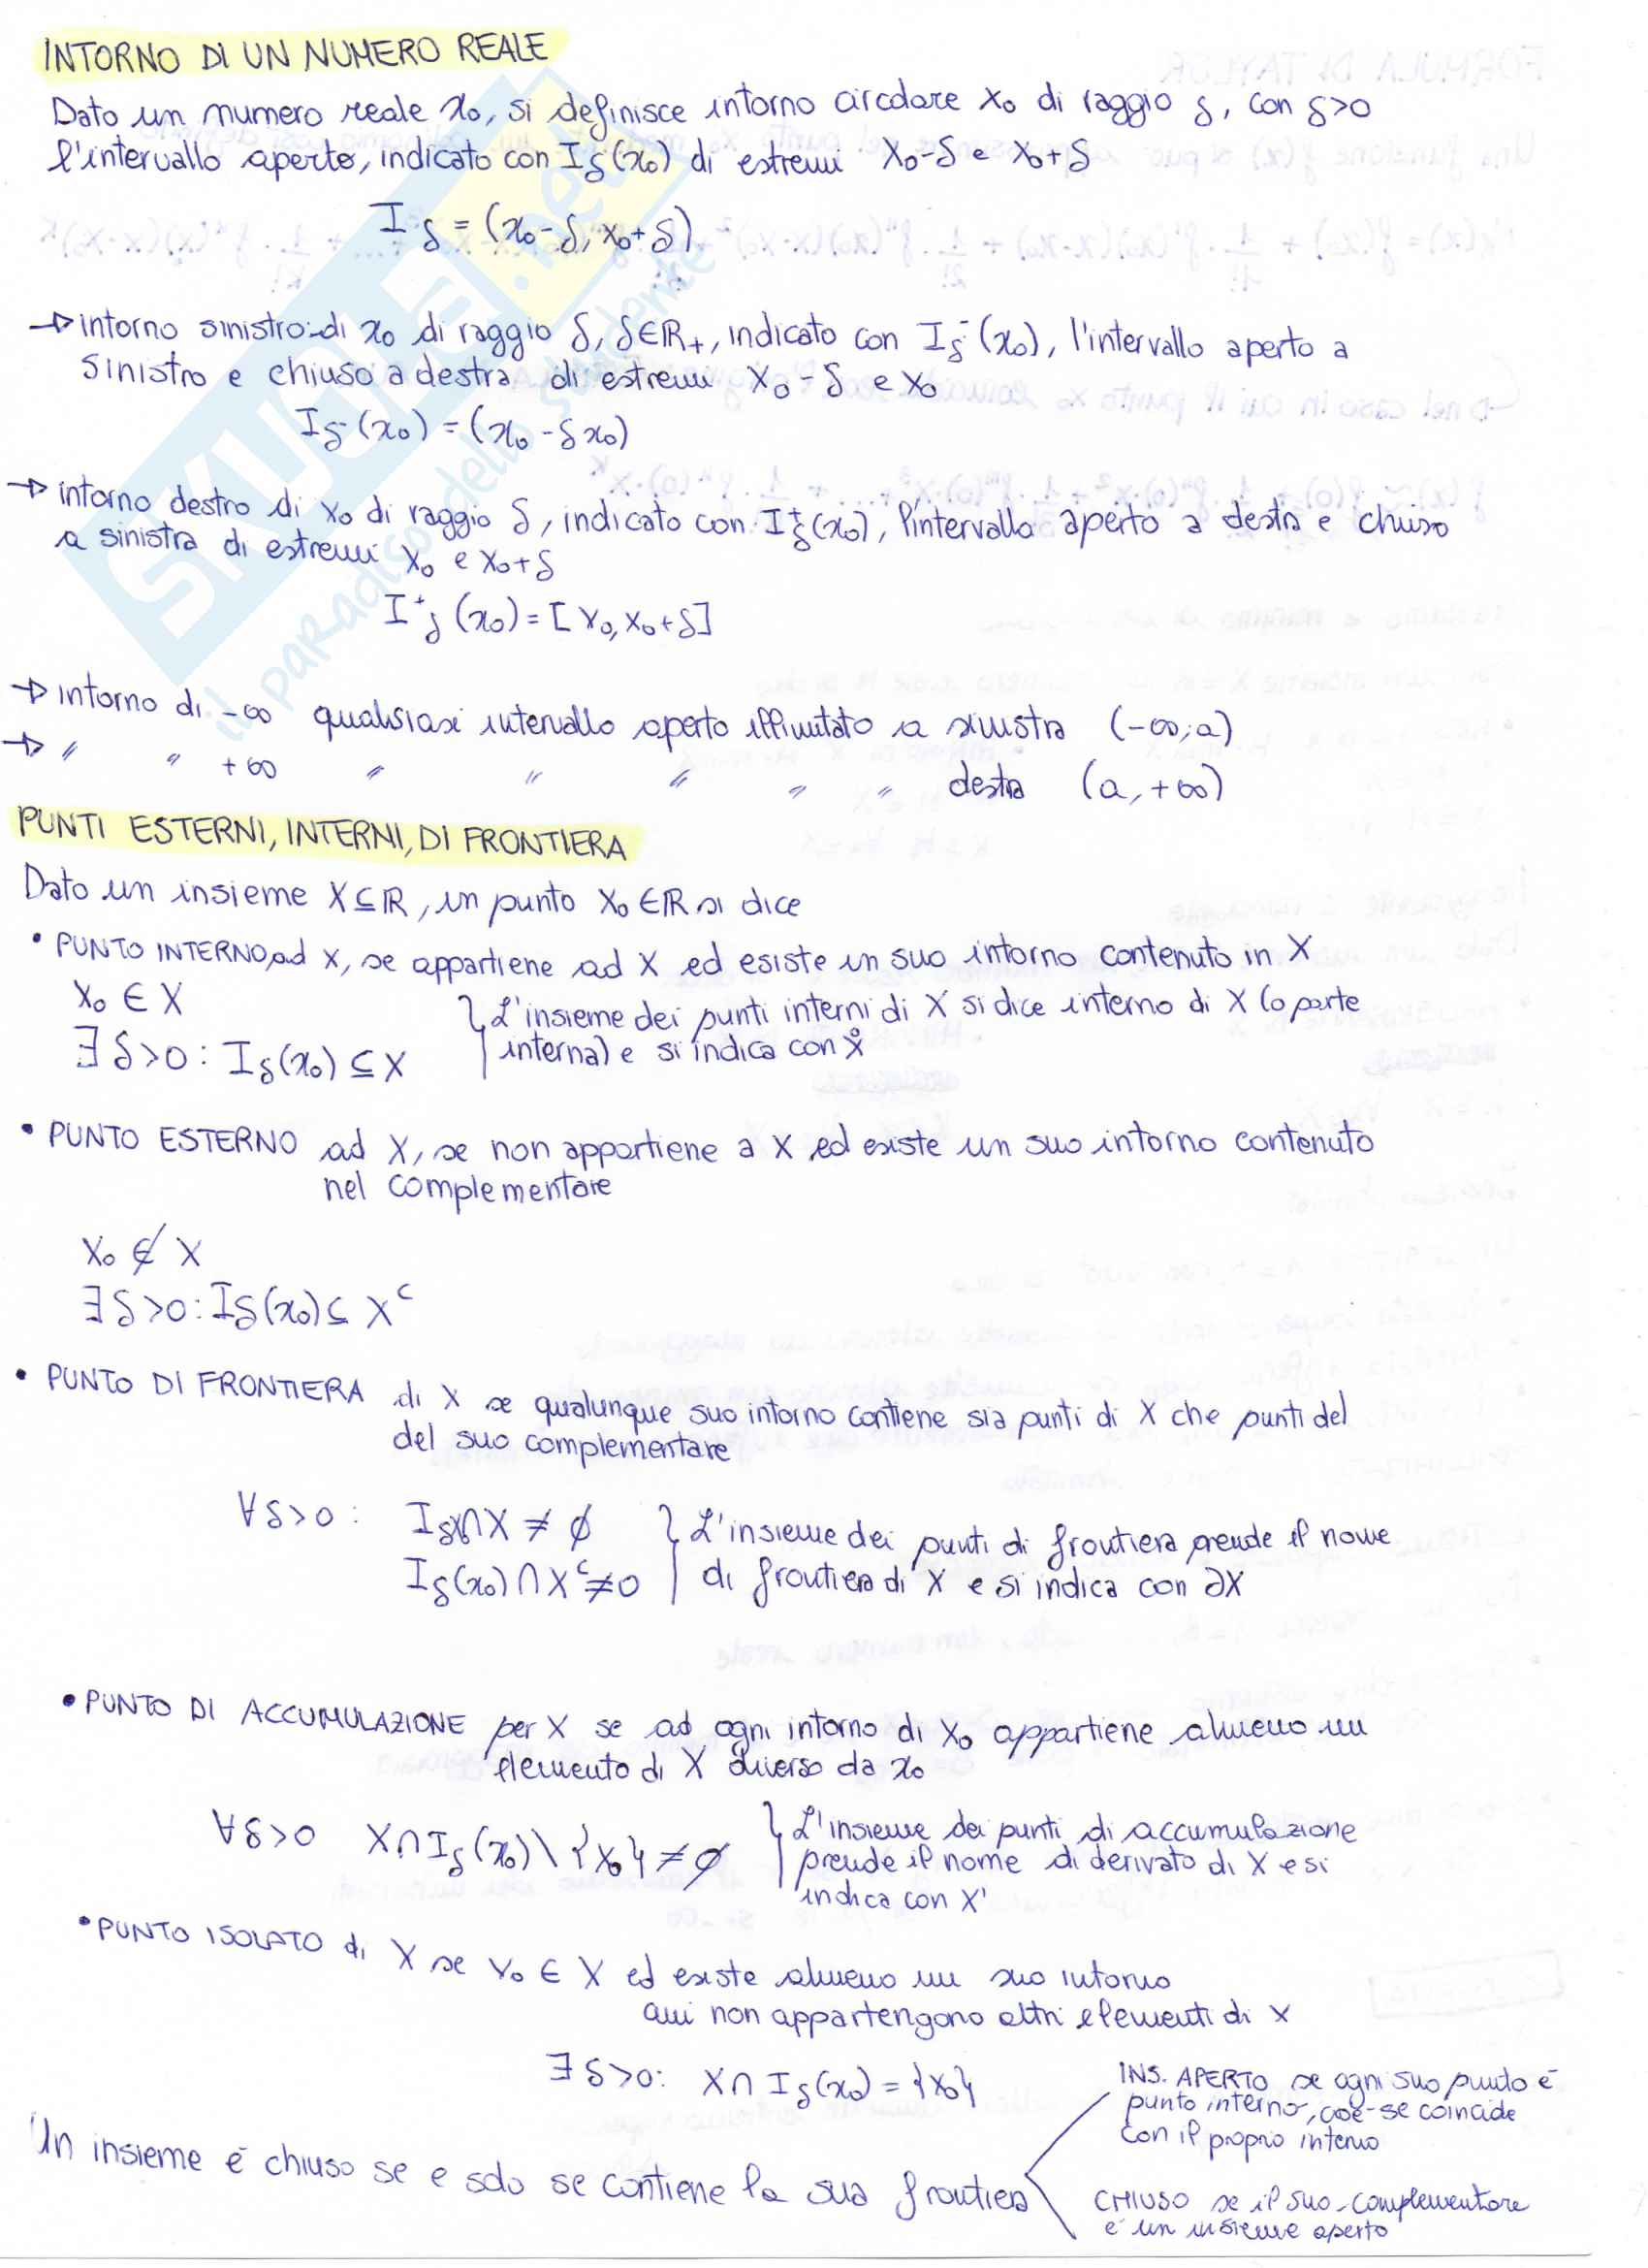 INTORNO DI UN NUMERO REALE
Dato un numero reale x₀, si definisce intorno circolare x₀ di raggio δ, con δ>0
l'intervallo aperto, indicato con Iδ(x₀) di estremi x₀-δ e x₀+δ
I δ = (x₀-δ, x₀+δ)
→ intorno sinistro di x₀ di raggio δ, δ∈ℝ₊, indicato con Iδ⁻(x₀), l'intervallo aperto a
sinistro e chiuso a destra di estremi x₀-δ e x₀
Iδ⁻(x₀) = (x₀-δ x₀)
→ intorno destro di x₀ di raggio δ, indicato con I⁺δ(x₀), l'intervallo aperto a destra e chiuso
a sinistra di estremi x₀ e x₀+δ
I⁺δ (x₀) = [x₀, x₀+δ]
→ intorno di -∞ qualsiasi intervallo aperto illimitato a sinistra (-∞; a)
→ " " +∞ " " " " " destra (a, +∞)
PUNTI ESTERNI, INTERNI, DI FRONTIERA
Dato un insieme X⊆ℝ, un punto x₀∈ℝ si dice
• PUNTO INTERNO ad X, se appartiene ad X ed esiste un suo intorno contenuto in X
x₀ ∈ X
∃ δ>0 : Iδ(x₀) ⊆ X
L'insieme dei punti interni di X si dice interno di X (o parte
interna) e si indica con X̊
• PUNTO ESTERNO ad X, se non appartiene a X ed esiste un suo intorno contenuto
nel complementare
x₀ ∉ X
∃ δ>0 : Iδ(x₀) ⊆ Xᶜ
• PUNTO DI FRONTIERA di X se qualunque suo intorno contiene sia punti di X che punti del
del suo complementare
∀δ>0 : Iδ ∩X ≠ ∅
Iδ(x₀)∩Xᶜ≠0
L'insieme dei punti di frontiera prende il nome
di frontiera di X e si indica con ∂X
• PUNTO DI ACCUMULAZIONE per X se ad ogni intorno di x₀ appartiene almeno un
elemento di X diverso da x₀
∀δ>0 X∩Iδ(x₀)\{x₀} ≠ ∅
L'insieme dei punti di accumulazione
prende il nome di derivato di X e si
indica con X'
• PUNTO ISOLATO di X se x₀ ∈ X ed esiste almeno un suo intorno
cui non appartengono altri elementi di X
∃ δ>0: X∩Iδ(x₀) = {x₀}
Un insieme è chiuso se e solo se contiene la sua frontiera
INS. APERTO se ogni suo punto è
punto interno, cioè se coincide
con il proprio interno
CHIUSO se il suo complementare
è un insieme aperto
SKUOLA.net
il paradiso dello studente